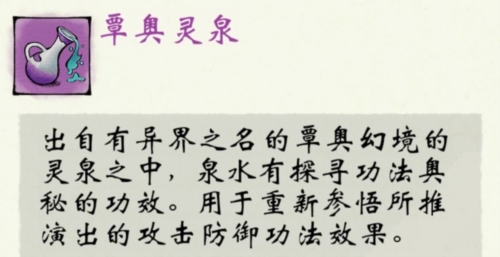 覃奥灵泉
出自有异界之名的覃奥幻境的
灵泉之中，泉水有探寻功法奥
秘的功效。用于重新参悟所推
演出的攻击防御功法效果。